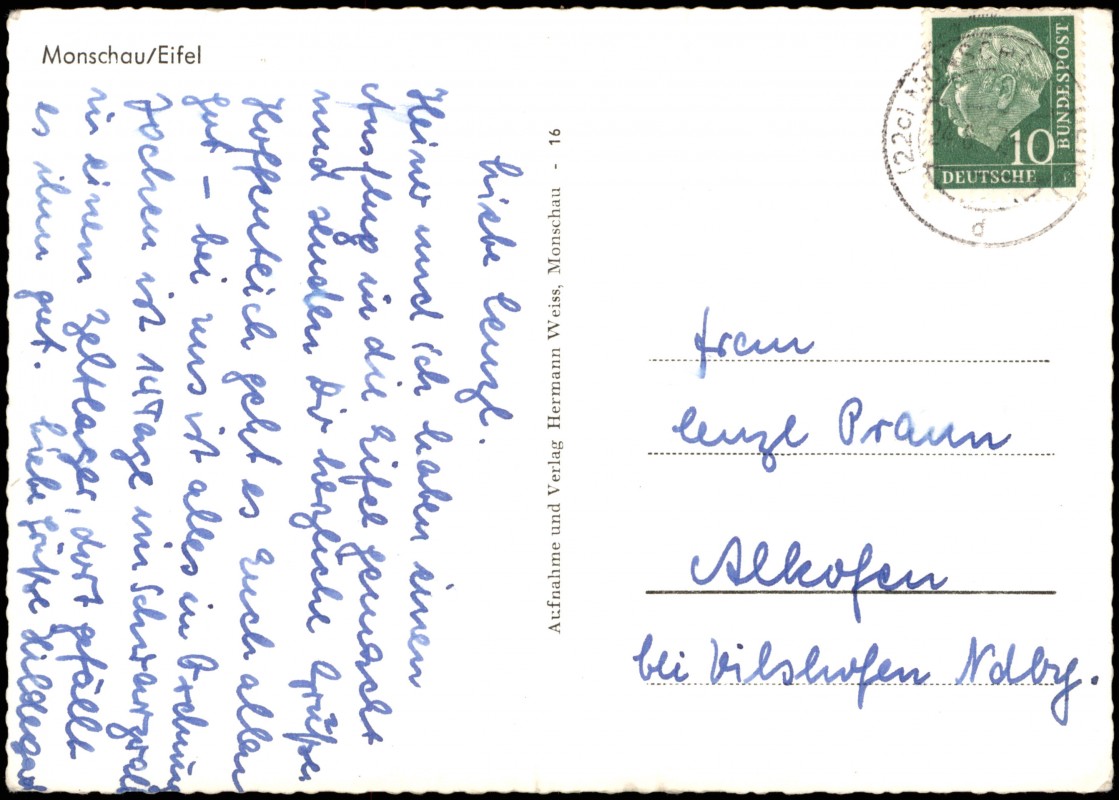 Monschau/Eifel
Liebe Lenzl.
Heiner und ich haben einen
Ausflug in die Eifel gemacht
und senden Dir herzliche Grüße.
Hoffentlich geht es Euch allen
gut – bei uns ist alles in Ordnung
Jochen ist 14 Tage im Schwarzwald
in einem Zeltlager, dort gefällt
es ihm gut. Liebe Grüße Hildegard
Aufnahme und Verlag Hermann Weiss, Monschau - 16
DEUTSCHE
BUNDESPOST
10
(22c) MONSCHAU
d
Frau
Lenzl Praun
Alkofen
bei Vilshofen Ndby.